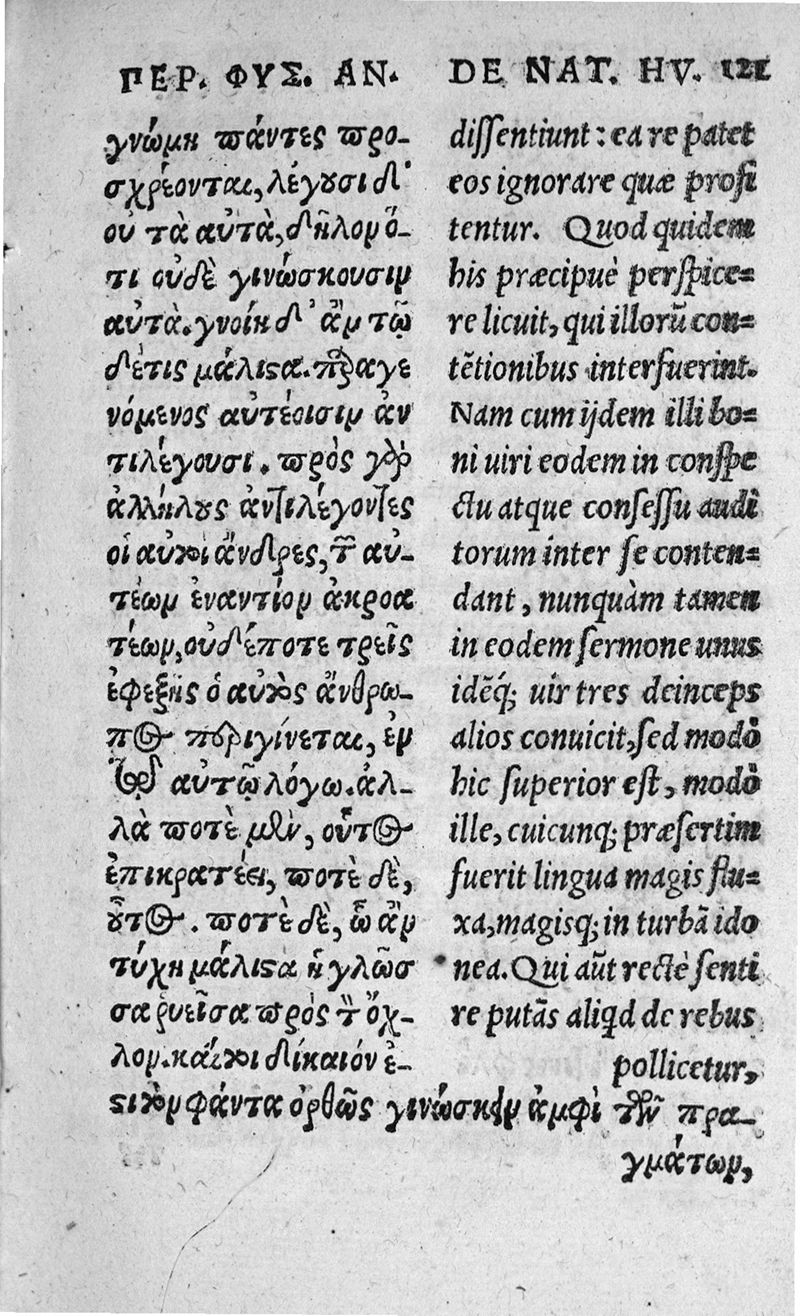 ΠΕΡ. ΦΥΣ. ΑΝ.
γνώμῃ πάντες προ-
σχρέονται, λέγουσι δ'
οὐ τὰ αὐτὰ, δῆλον ὅ-
τι οὐδὲ γινώσκουσιν
αὐτὰ. γνοίη δ' ἂν τῷ
δέ τις μάλιστα. παραγε
νόμενος αὐτέοισιν ἀν
τιλέγουσι. πρὸς γὰρ
ἀλλήλους ἀντιλέγοντες
οἱ αὐτοὶ ἄνδρες, τῶν αὐ-
τέων ἐναντίον ἀκροα
τέων, οὐδέποτε τρεῖς
ἐφεξῆς ὁ αὐτὸς ἄνθρω-
πος περιγίνεται, ἐν
τῷ αὐτῷ λόγω. ἀλ-
λὰ ποτὲ μὲν, οὗτος
ἐπικρατέει, ποτὲ δὲ,
οὗτος. ποτὲ δὲ, ᾧ ἂν
τύχη μάλιστα ἡ γλῶσ
σα ῥυεῖσα πρὸς τὸν ὄχ-
λον. καί τοι δίκαιόν ἐ-
στι τὸν φάντα ὀρθῶς γινώσκειν ἀμφὶ τῶν πρα-
γμάτων,
DE NAT. HV. 121
dissentiunt: ea re patet
eos ignorare quæ profi
tentur. Quod quidem
his præcipuè perspice=
re licuit, qui illorũ con=
tẽtionibus interfuerint.
Nam cum ijdem illi bo=
ni uiri eodem in conspe
ctu atque consessu audi
torum inter se conten=
dant, nunquàm tamen
in eodem sermone unus
idẽq; uir tres deinceps
alios conuicit, sed modò
hic superior est, modò
ille, cuicunq; præsertim
fuerit lingua magis flu=
xa, magisq; in turbã ido
nea. Qui aũt rectè senti
re putãs aliqd de rebus
pollicetur,